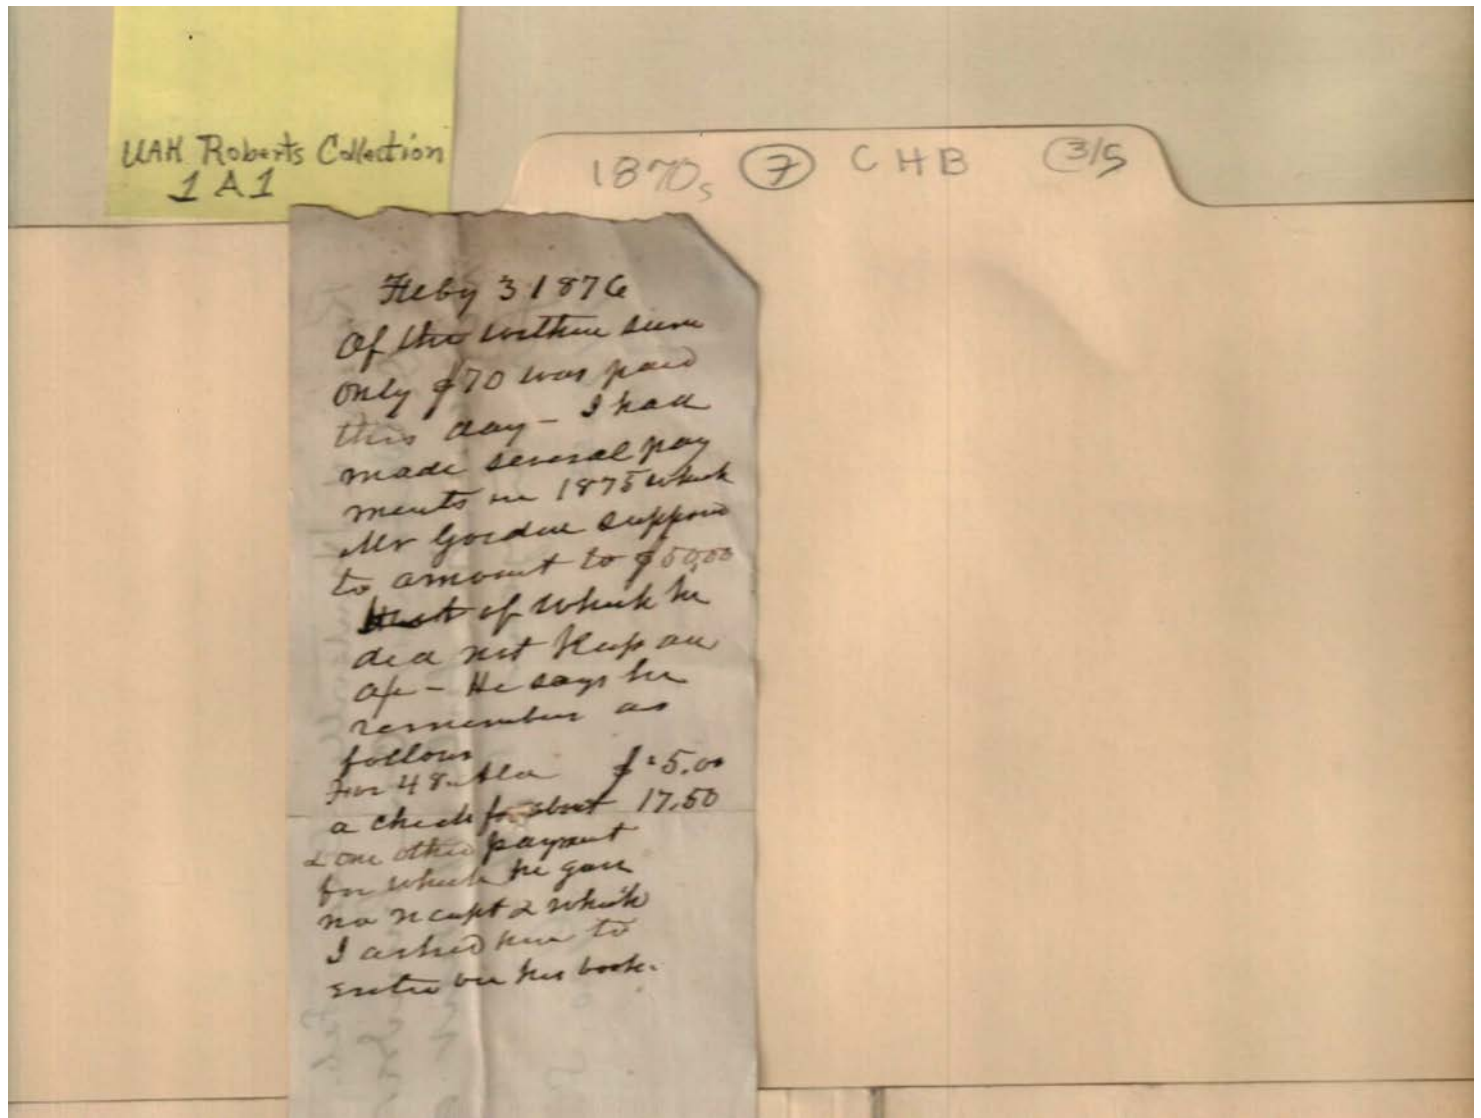 UAH Roberts Collection
1 A 1
1870s 7 CHB 3/5
Feby 3 1876
Of the within sum
only $70 was paid
this day - I had
made several pay
ments in 1875 which
Mr Gordon suppose
to amount to $50.00
of which he
did not keep an
a/c - He says he
remember as
follows
For 48 $ 5.00
a check for about 17.50
& one other payment
for which he gave
no receipt & which
I asked him to
enter on his book.